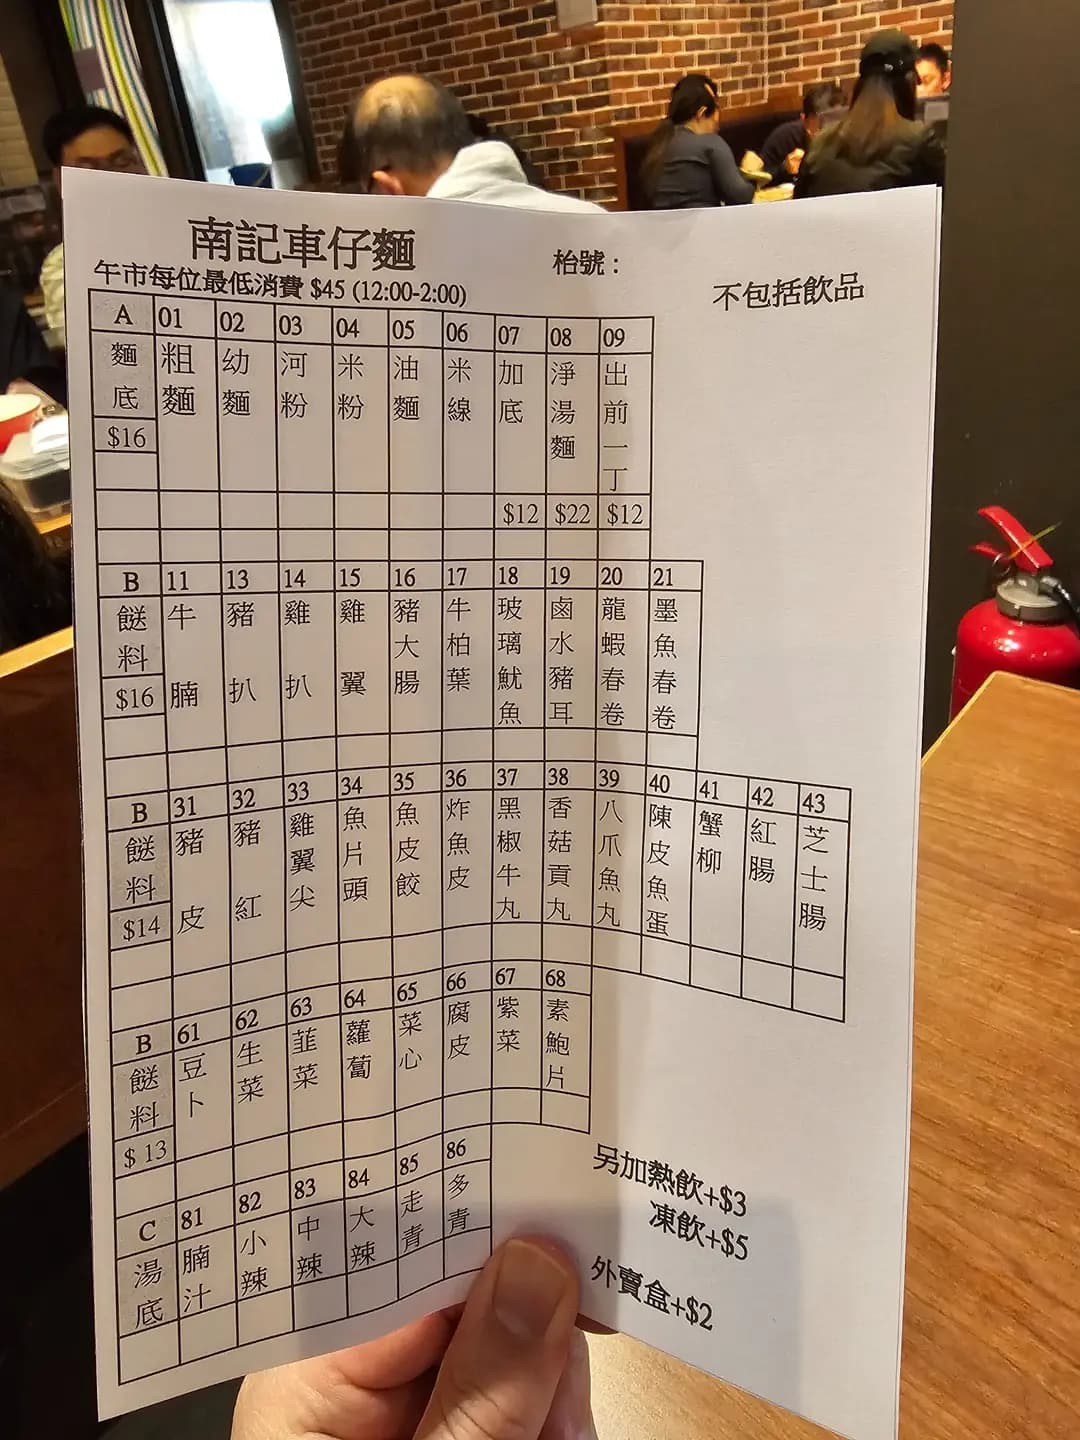 南記車仔麵
枱號：
午市每位最低消費 $45 (12:00-2:00)
不包括飲品
A 01 02 03 04 05 06 07 08 09
麵底 粗麵 幼麵 河粉 米粉 油麵 米線 加底 淨湯麵 出前一丁
$16
$12 $22 $12
B 11 13 14 15 16 17 18 19 20 21
餸料 牛腩 豬扒 雞扒 雞翼 豬大腸 牛柏葉 玻璃魷魚 鹵水豬耳 龍蝦春卷 墨魚春卷
$16
B 31 32 33 34 35 36 37 38 39 40 41 42 43
餸料 豬皮 豬紅 雞翼尖 魚片頭 魚皮餃 炸魚皮 黑椒牛丸 香菇貢丸 八爪魚丸 陳皮魚蛋 蟹柳 紅腸 芝士腸
$14
B 61 62 63 64 65 66 67 68
餸料 豆卜 生菜 韮菜 蘿蔔 菜心 腐皮 紫菜 素鮑片
$ 13
C 81 82 83 84 85 86
湯底 腩汁 小辣 中辣 大辣 走青 多青
另加熱飲+$3
凍飲+$5
外賣盒+$2